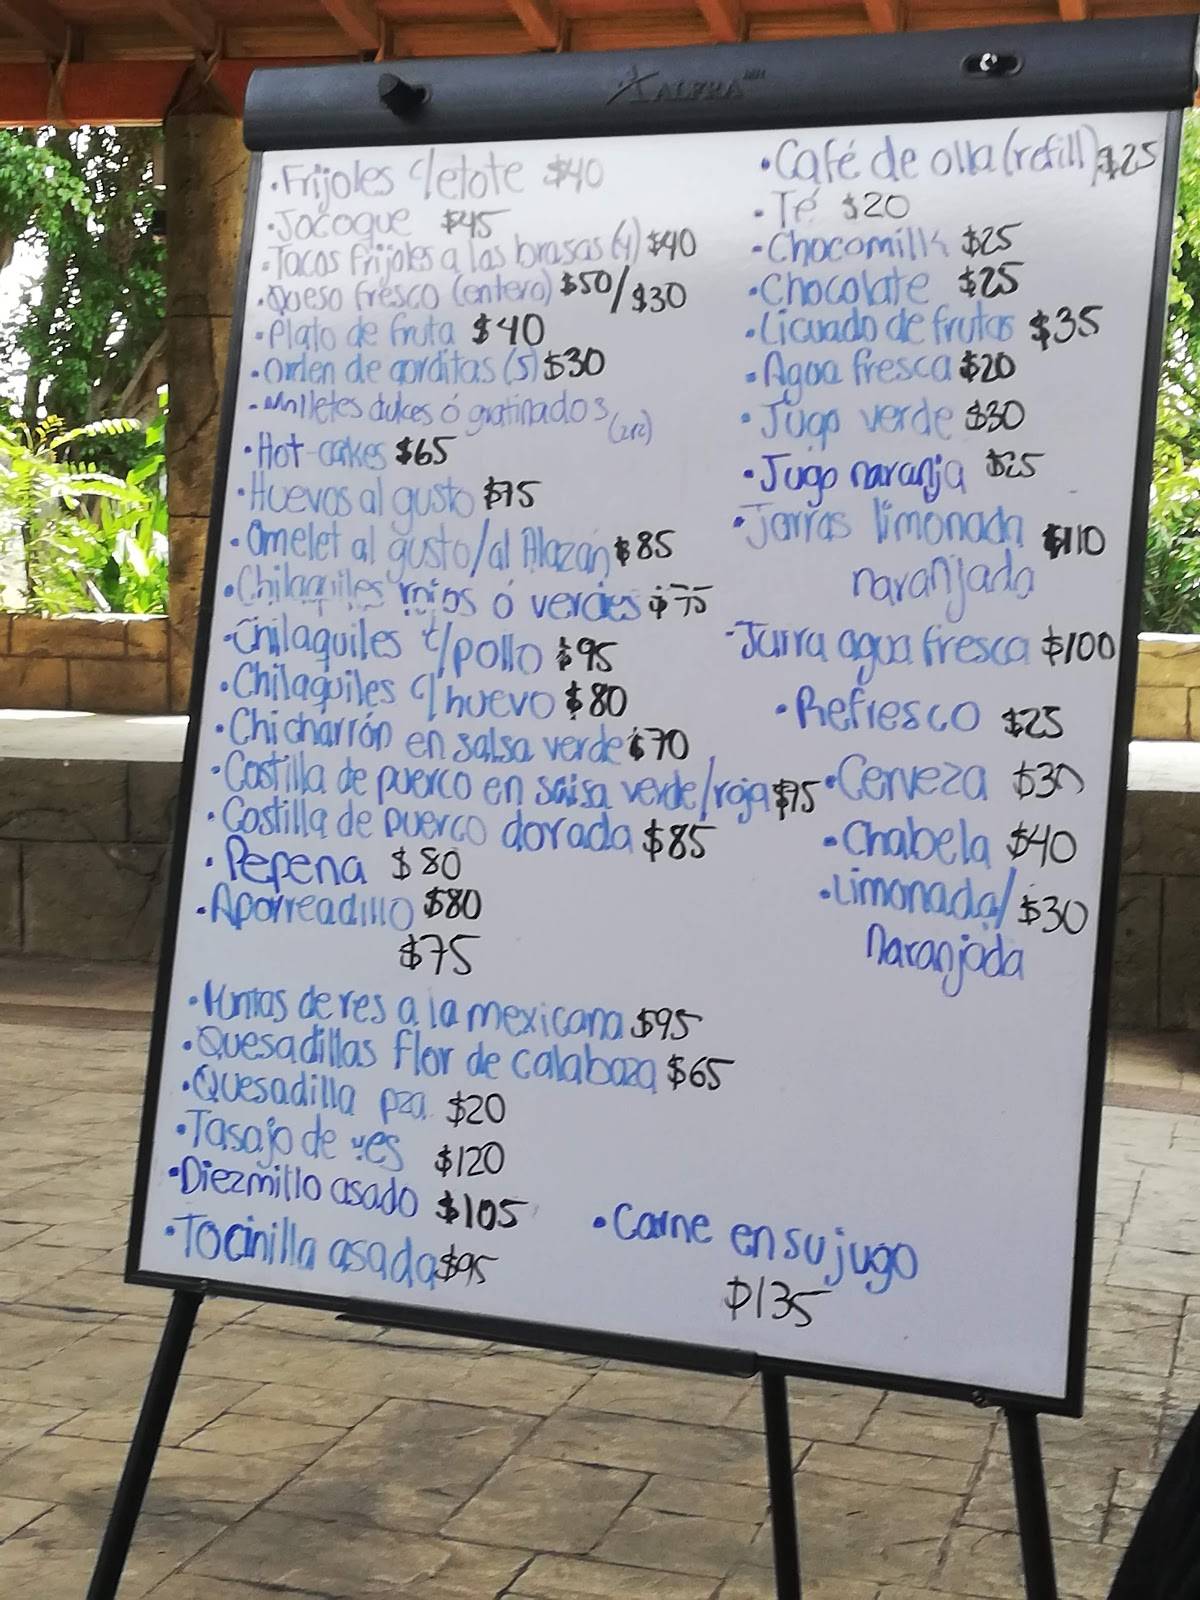 ALFRA
• Frijoles c/elote $40
• Jocoque $45
• Tacos frijoles a las brasas (4) $40
• Queso fresco (entero) $50/$30
• Plato de fruta $40
• Orden de gorditas (5) $30
• Molletes dulces ó gratinados (2x2)
• Hot-cakes $65
• Huevos al gusto $75
• Omelet al gusto/al Alazan $85
• Chilaquiles rojos ó verdes $75
• Chilaquiles c/pollo $95
• Chilaquiles c/huevo $80
• Chicharrón en salsa verde $70
• Costilla de puerco en salsa verde/roja $75
• Costilla de puerco dorada $85
• Pepena $80
• Aporreadillo $80
$75
• Puntas de res a la mexicana $95
• Quesadillas flor de calabaza $65
• Quesadilla pza. $20
• Tasajo de res $120
• Diezmillo asado $105
• Tocinilla asada $95
• Café de olla (refill) $25
• Té $20
• Chocomilk $25
• Chocolate $25
• Licuado de frutas $35
• Agua fresca $20
• Jugo verde $30
• Jugo naranja $25
• Jarras limonada $110
naranjada
• Jarra agua fresca $100
• Refresco $25
• Cerveza $30
• Chabela $40
• Limonada/ $30
Naranjada
• Carne en su jugo
$135